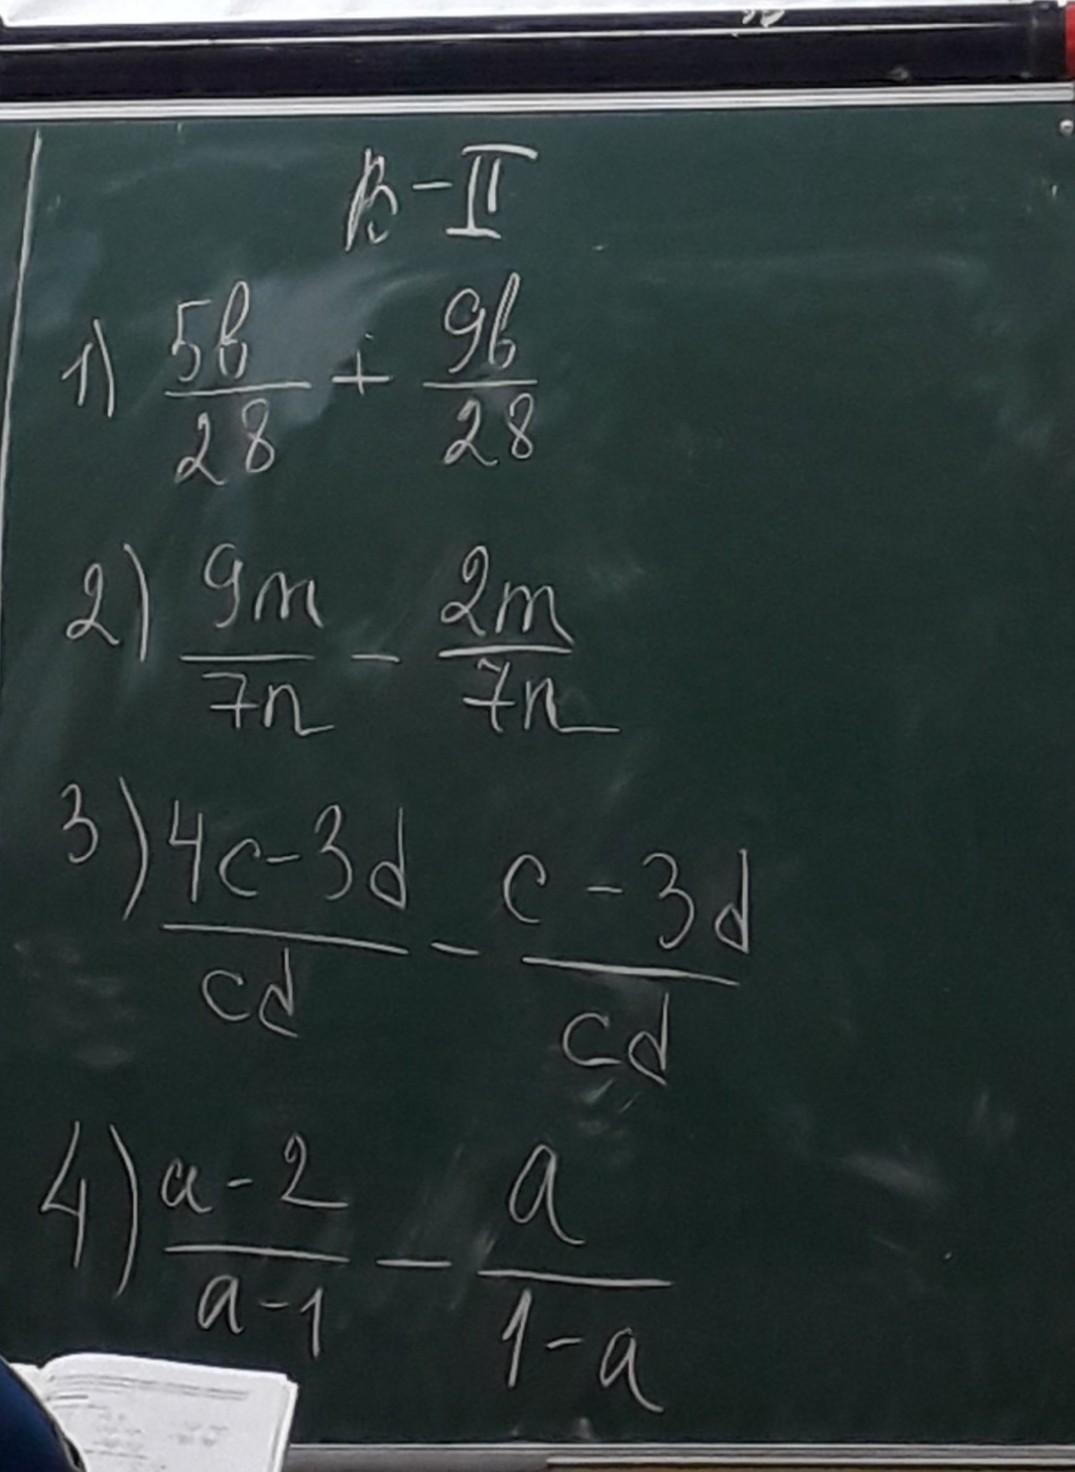 В-II
1) 5b/28 + 9b/28
2) 9m/7n - 2m/7n
3) 4c-3d/cd - c-3d/cd
4) a-2/a-1 - a/1-a